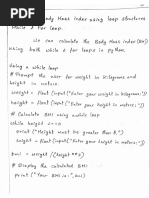 Body Mass Index using loop structures
while & for loop.
We can calculate the Body Mass index (BMI)
using both while & for loops in python.
Using a while loop
# Prompt the user for weight in kilograms and
height in meters.
weight = float (input ("Enter your weight in kilograms:"
height = float (input ("Enter your height in meters:"
# Calculate BMI using while loop
while height <=0
print ("Height must be greater than 0.")
height = float (input ("Enter your height in meters:"
bmi = weight / (height **2)
# Display the calculated BMI
print ("Your BMI is:", bmi)